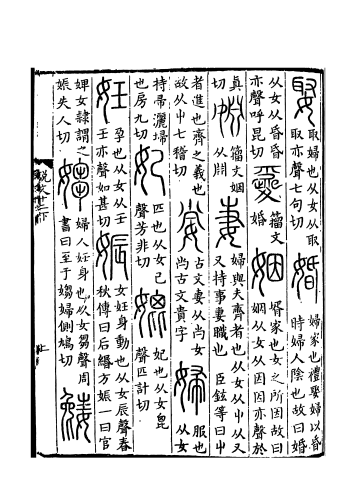 娶 取婦也从女从取取亦聲七句切 婚 婦家也禮娶婦以昏時婦人陰也故曰婚
从女从昏昏亦聲呼昆切 籒文婚 姻 壻家也女之所因故曰姻从女从因因亦聲於
真切 婣 籒文姻从𣶒 妻 婦與夫齊者也从女从屮从又又持事妻職也臣鉉等曰屮
者進也齊之義也故从屮七稽切 古文妻从尚女尚古文貴字 婦 服也从女
持帚灑埽也房九切 妃 匹也从女己聲芳非切 媲 妃也从女毘聲匹計切
妊 孕也从女从壬壬亦聲如甚切 娠 女妊身動也从女辰聲春秋傳曰后緡方娠一曰官
婢女隷謂之娠失人切 媰 婦人妊身也从女芻聲周書曰至于媰婦側鳩切 嬎
說文十二下